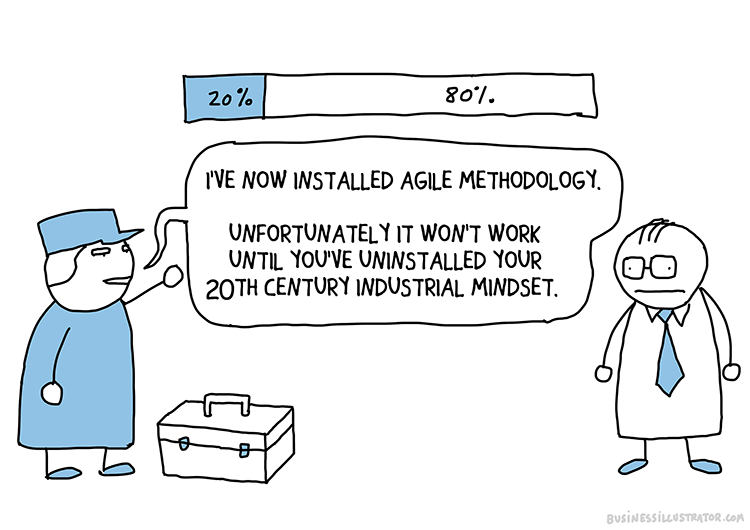 20% 80%.
I'VE NOW INSTALLED AGILE METHODOLOGY.
UNFORTUNATELY IT WON'T WORK
UNTIL YOU'VE UNINSTALLED YOUR
20TH CENTURY INDUSTRIAL MINDSET.
BUSINESSILLUSTRATOR.COM